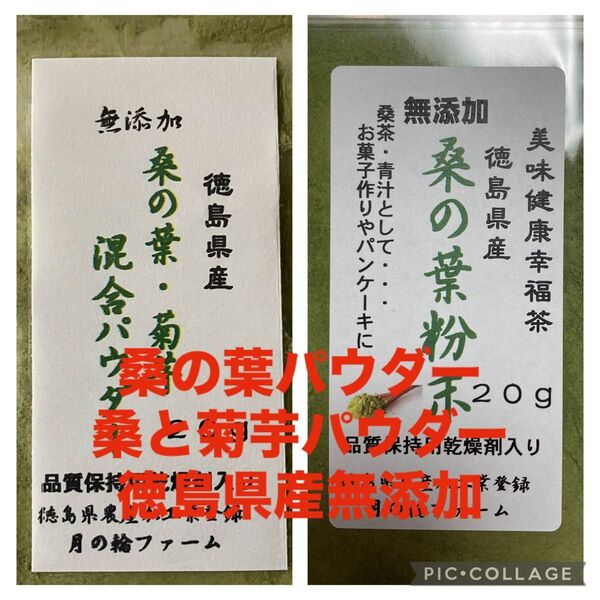 無添加
徳島県産
桑の葉・菊芋
混合パウダー
20g
品質保持用乾燥剤入り
徳島県農産加工業登録
月の輪ファーム
美味健康幸福茶
無添加
徳島県産
桑の葉粉末
桑茶・青汁として・・・
お菓子作りやパンケーキに
20g
品質保持用乾燥剤入り
月の輪ファーム
桑の葉パウダー
桑と菊芋パウダー
徳島県産無添加
PIC•COLLAGE